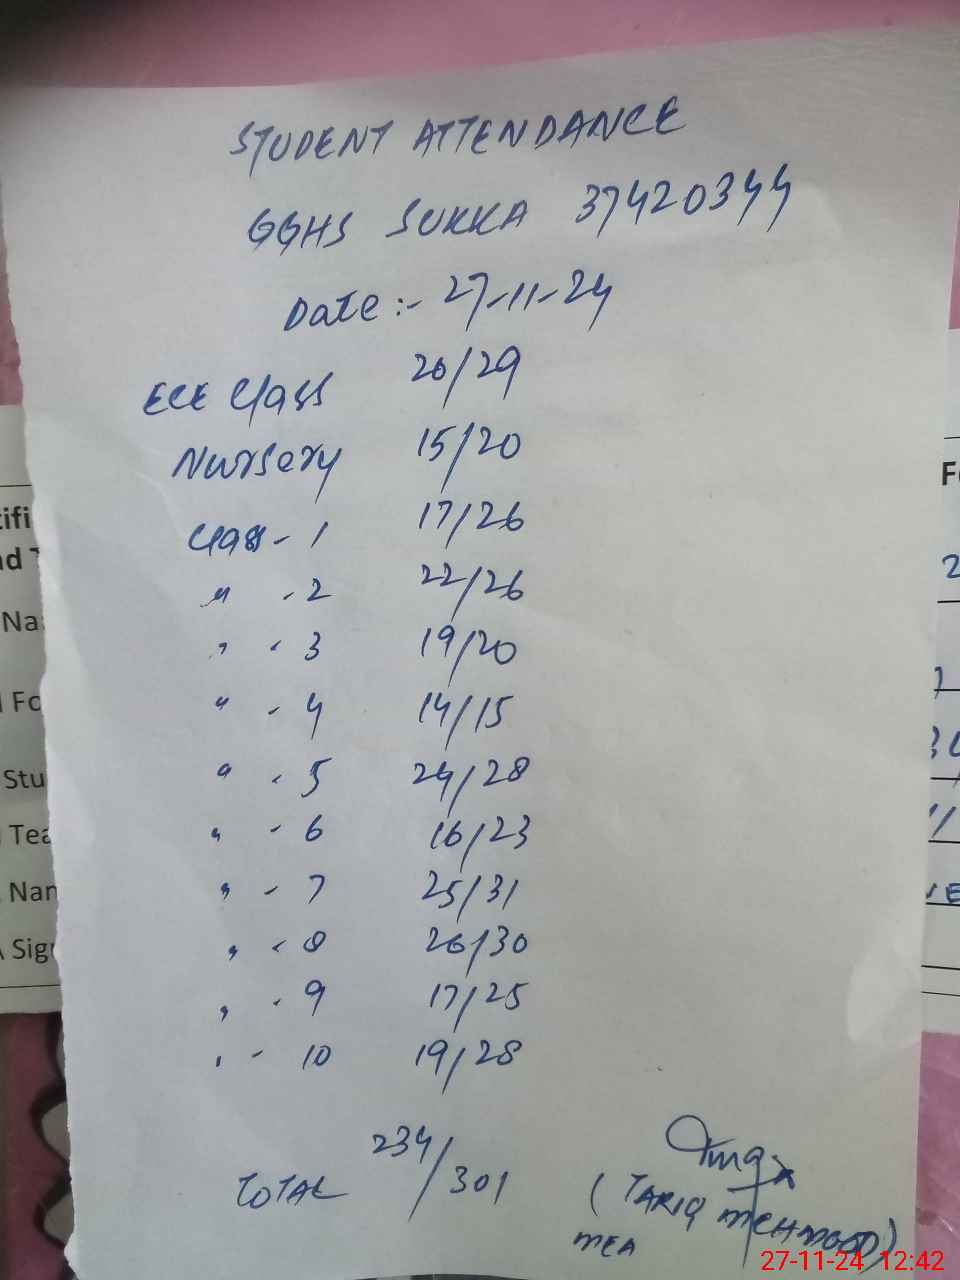 STUDENT ATTENDANCE
GGHS SUKKA 37420344
Date :- 27-11-24
ECE Class 20/29
Nursery 15/20
Class - 1 17/26
" - 2 22/26
" - 3 19/20
" - 4 14/15
" - 5 24/28
" - 6 16/23
" - 7 25/31
" - 8 26/30
" - 9 17/25
" - 10 19/28
TOTAL 234/301
(TARIQ MEHMOOD)
MEA
27-11-24 12:42
tifi
nd
Na
Fo
Stu
Tea
Nan
Sig